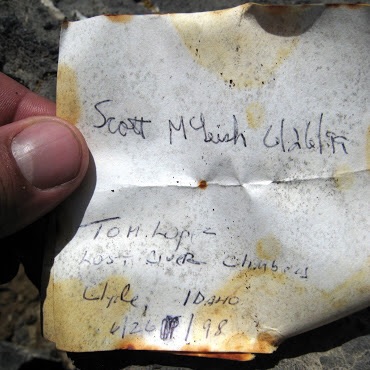 Scott McLeish 6/26/99
Tom Lopez
Lost River Climbers
Clyde, IDAHO
6/26 /98